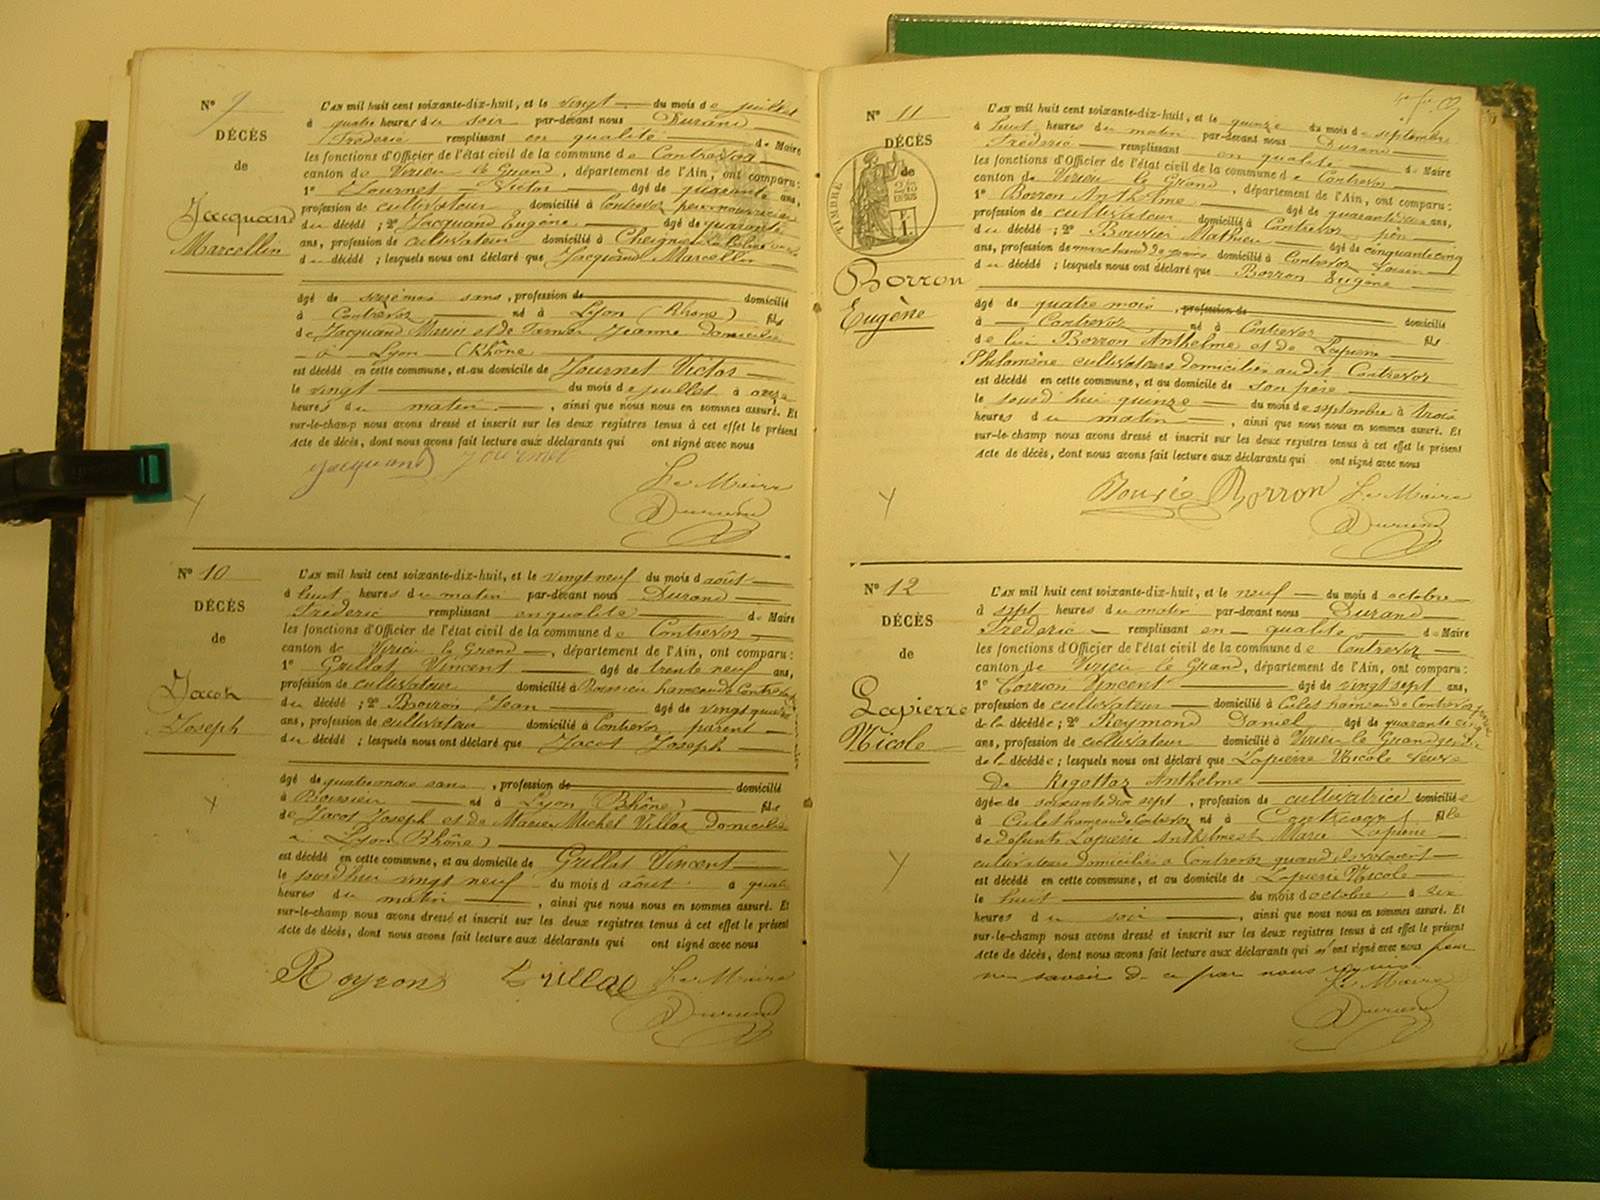 N° 9
DÉCÈS
de
Jacquand
Marcellin
L'AN mil huit cent soixante-dix-huit, et le vingt du mois de juillet
à quatre heures du soir par-devant nous Durand
Frédéric remplissant en qualité de Maire
les fonctions d'Officier de l'état civil de la commune de Contrevoz
canton de Virieu le Grand, département de l'Ain, ont comparu :
1° Journet Victor âgé de quarante ans,
profession de cultivateur domicilié à Contrevoz père nourricier
du décédé ; 2° Jacquand Eugène âgé de quarante
ans, profession de cultivateur domicilié à Cheignieu la Balme
du décédé ; lesquels nous ont déclaré que Jacquand Marcellin
âgé de seize mois sans, profession de domicilié
à Contrevoz né à Lyon (Rhône) fils
de Jacquand Marie et de Jeanne domiciliés
à Lyon (Rhône)
est décédé en cette commune, et au domicile de Journet Victor
le vingt du mois de juillet à onze
heures du matin, ainsi que nous nous en sommes assuré. Et
sur-le-champ nous avons dressé et inscrit sur les deux registres tenus à cet effet le présent
Acte de décès, dont nous avons fait lecture aux déclarants qui ont signé avec nous
Jacquand Journet Le Maire
Durand
N° 10
DÉCÈS
de
Jacot
Joseph
L'AN mil huit cent soixante-dix-huit, et le vingt neuf du mois d août
à huit heures du matin par-devant nous Durand
Frédéric remplissant en qualité de Maire
les fonctions d'Officier de l'état civil de la commune de Contrevoz
canton de Virieu le Grand, département de l'Ain, ont comparu :
1° Grillat Vincent âgé de trente neuf ans,
profession de cultivateur domicilié à Boissieu hameau de Contrevoz
du décédé ; 2° Jean âgé de vingt quatre
ans, profession de cultivateur domicilié à Contrevoz parent
du décédé ; lesquels nous ont déclaré que Jacot Joseph
âgé de quatre mois sans, profession de domicilié
à Boissieu né à Lyon (Rhône) fils
de Jacot Joseph et de Michel domiciliés
à Lyon (Rhône)
est décédé en cette commune, et au domicile de Grillat Vincent
le jourd'hui vingt neuf du mois d août à quatre
heures du matin, ainsi que nous nous en sommes assuré. Et
sur-le-champ nous avons dressé et inscrit sur les deux registres tenus à cet effet le présent
Acte de décès, dont nous avons fait lecture aux déclarants qui ont signé avec nous
Royron Grillat Le Maire
Durand
N° 11
DÉCÈS
de
TIMBRE
Borron
Eugène
L'AN mil huit cent soixante-dix-huit, et le quinze du mois de septembre
à huit heures du matin par-devant nous Durand
Frédéric remplissant en qualité de Maire
les fonctions d'Officier de l'état civil de la commune de Contrevoz
canton de Virieu le Grand, département de l'Ain, ont comparu :
1° Borron Anthelme âgé de quarante ans,
profession de cultivateur domicilié à Contrevoz père
du décédé ; 2° Mathieu âgé de cinquante cinq
ans, profession de marchand de domicilié à Contrevoz voisin
du décédé ; lesquels nous ont déclaré que Borron Eugène
âgé de quatre mois, profession de domicilié
à Contrevoz né à Contrevoz fils
de lui Borron Anthelme et de Lapierre
Philomène cultivateurs domiciliés audit Contrevoz
est décédé en cette commune, et au domicile de son père
le jourd'hui quinze du mois de septembre à trois
heures du matin, ainsi que nous nous en sommes assuré. Et
sur-le-champ nous avons dressé et inscrit sur les deux registres tenus à cet effet le présent
Acte de décès, dont nous avons fait lecture aux déclarants qui ont signé avec nous
Borron Le Maire
Durand
N° 12
DÉCÈS
de
Lapierre
Nicole
L'AN mil huit cent soixante-dix-huit, et le neuf du mois d octobre
à sept heures du matin par-devant nous Durand
Frédéric remplissant en qualité de Maire
les fonctions d'Officier de l'état civil de la commune de Contrevoz
canton de Virieu le Grand, département de l'Ain, ont comparu :
1° Vincent âgé de vingt sept ans,
profession de cultivateur domicilié à hameau de Contrevoz
de la décédée ; 2° Reymond Daniel âgé de quarante cinq
ans, profession de cultivateur domicilié à Virieu le Grand gendre
de la décédée ; lesquels nous ont déclaré que Lapierre Nicole veuve
de Rigottaz Anthelme
âgée de soixante dix sept, profession de cultivatrice domiciliée
à hameau de Contrevoz né à fille
de défunts Lapierre Anthelme et Marie Lapierre
cultivateurs domiciliés à Contrevoz quand ils vivaient
est décédé en cette commune, et au domicile de Lapierre Nicole
le huit du mois d octobre à six
heures du soir, ainsi que nous nous en sommes assuré. Et
sur-le-champ nous avons dressé et inscrit sur les deux registres tenus à cet effet le présent
Acte de décès, dont nous avons fait lecture aux déclarants qui n'ont signé avec nous pour
ne savoir de ce par nous requis.
Le Maire
Durand